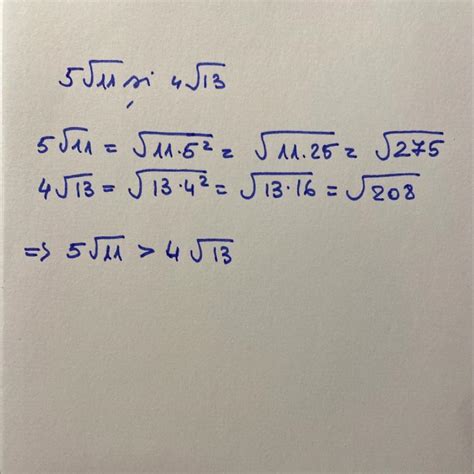 5√11 și 4√13
5√11 = √11·5² = √11·25 = √275
4√13 = √13·4² = √13·16 = √208
=> 5√11 > 4√13